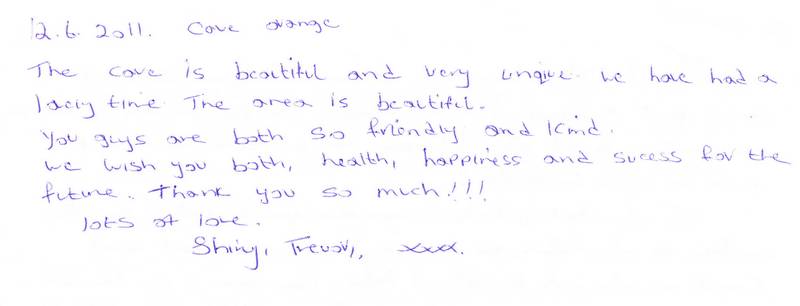 12.6.2011. Cave orange
The cave is beautiful and very unqiue. we have had a
lacly time. The area is beautiful.
You guys are both so friendly and kind.
we wish you both, health, happiness and sucess for the
future. Thank you so much!!!
lots of love.
Shiny, Trevor, xxxx.